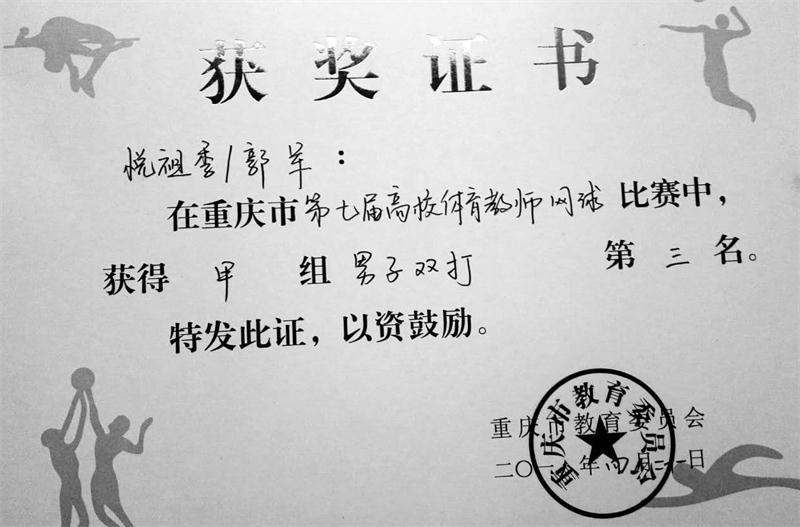 获奖证书
悦祖季/郭羊：
在重庆市第七届高校体育教师网球比赛中，
获得甲组男子双打第三名。
特发此证，以资鼓励。
重庆市教育委员会
重庆市教育委员会
二〇一 年四月二十一日